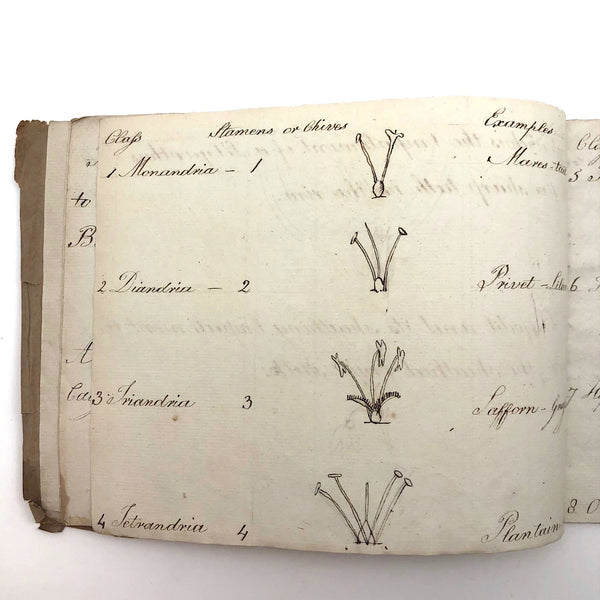 Class Stamens or Chives Examples
1 Monandria – 1 Mares-tail
2 Diandria – 2 Privet –
3 Triandria 3 Safforn –
4 Tetrandria 4 Plantain
to
B
A
Ca
5
6
7
8 O